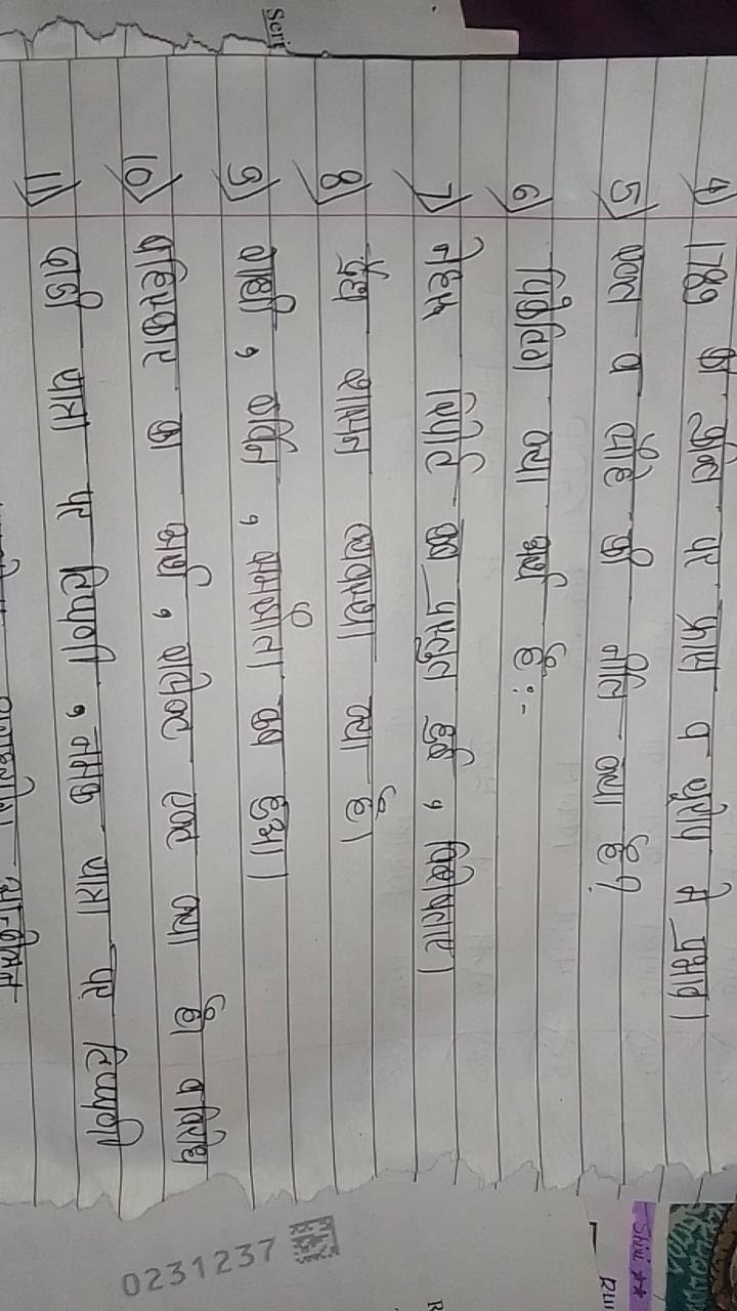 4) 1789 की क्रान्ति पर फ्रांस व यूरोप में प्रभाव।
5) रक्त व लोहे की नीति क्या है?
6) क्या अर्थ है :-
7) नेहरू रिपोर्ट कब प्रस्तुत हुई, विशेषताएं।
8) द्वैध शासन व्यवस्था क्या है।
9) गांधी, इर्विन, समझौता कब हुआ।
10) बहिष्कार का अर्थ, रॉलेक्ट एक्ट क्या है। व विरोध
11) दाण्डी यात्रा पर टिप्पणी, नमक यात्रा पर टिप्पणी
Seri
0231237
Shiv **